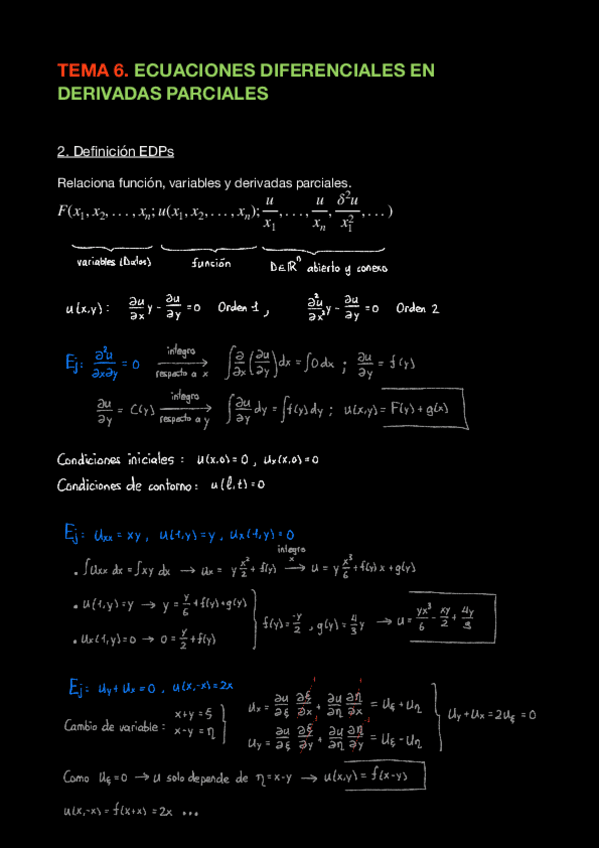 TEMA 6. ECUACIONES DIFERENCIALES EN
DERIVADAS PARCIALES
2. Definición EDPs
Relaciona función, variables y derivadas parciales.
F(x₁, x₂, . . . , xₙ; u(x₁, x₂, . . . , xₙ); u/x₁, . . . , u/xₙ, δ²u/x₁², . . . )
variables (Datos) función D∈ℝⁿ abierto y conexo
u(x,y): ∂u/∂x y - ∂u/∂y = 0 Orden 1 , ∂²u/∂x² y - ∂u/∂y = 0 Orden 2
Ej: ∂²u/∂x∂y = 0 integro respecto a x ⟶ ∫ ∂/∂x (∂u/∂y) dx = ∫0 dx ; ∂u/∂y = f(y)
∂u/∂y = C(y) integro respecto a y ⟶ ∫ ∂u/∂y dy = ∫f(y) dy ; u(x,y) = F(y) + g(x)
Condiciones iniciales : u(x,0) = 0 , uₓ(x,0) = 0
Condiciones de contorno : u(l,t) = 0
Ej: uxx = xy , u(1,y) = y , ux(1,y) = 0
· ∫uxx dx = ∫xy dx → ux = y x²/2 + f(y) integro x ⟶ u = y x³/6 + f(y) x + g(y)
· u(1,y) = y → y = y/6 + f(y) + g(y)
f(y) = -y/2 , g(y) = 4/3 y → u = yx³/6 - xy/2 + 4y/3
· ux(1,y) = 0 → 0 = y/2 + f(y)
Ej: uy + ux = 0 , u(x,-x) = 2x
Cambio de variable : x+y = ξ x-y = η
ux = ∂u/∂ξ ∂ξ/∂x + ∂u/∂η ∂η/∂x = uξ + uη
uy = ∂u/∂ξ ∂ξ/∂y + ∂u/∂η ∂η/∂y = uξ - uη
uy + ux = 2uξ = 0
Como uξ = 0 → u solo depende de η = x-y → u(x,y) = f(x-y)
u(x,-x) = f(x+x) = 2x ...